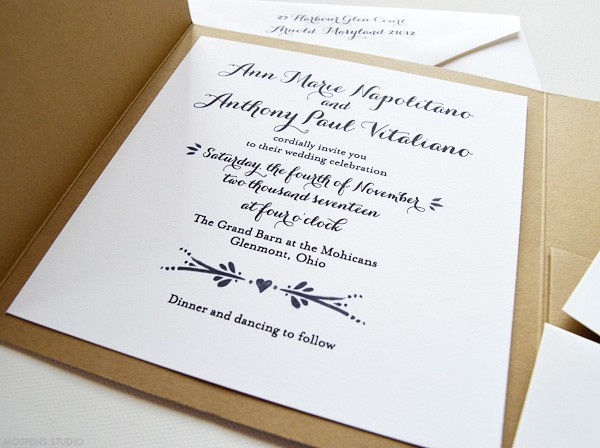 27 Harbour Glen Court
Arnold, Maryland 21012
Ann Marie Napolitano
and
Anthony Paul Vitaliano
cordially invite you
to their wedding celebration
Saturday, the fourth of November
two thousand seventeen
at four o'clock
The Grand Barn at the Mohicans
Glenmont, Ohio
Dinner and dancing to follow
MOSPENS STUDIO